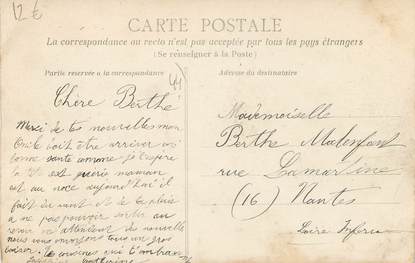 12 €
CARTE POSTALE
La correspondance au recto n'est pas acceptée par tous les pays étrangers
(Se renseigner à la Poste)
Partie réservée à la correspondance
Adresse du destinataire
44
Chère Berthe
Merci de tes nouvelles mon
Oncle doit être arriver en
bonne santé comme je l'espère
la tête est guérie maman
est au noce aujourd'hui il
fait du vent et de la pluie
a ne pas pouvoir sortir au
revoir en attendant des nouvelle
nous vous envoyons tous un gros
baiser. Ta cousine qui t'embrasse
Mademoiselle
Berthe Malenfant
rue Lamartine
(16) Nantes
Loire Infér